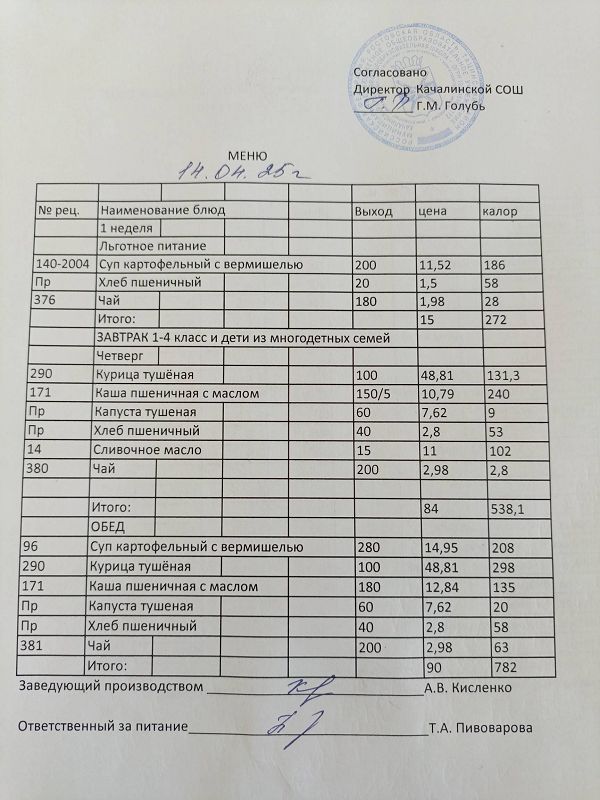 Согласовано
Директор Качалинской СОШ
Г.М. Голубь
МЕНЮ
14.04.25г
№ рец. Наименование блюд Выход цена калор
1 неделя
Льготное питание
140-2004 Суп картофельный с вермишелью 200 11,52 186
Пр Хлеб пшеничный 20 1,5 58
376 Чай 180 1,98 28
Итого: 15 272
ЗАВТРАК 1-4 класс и дети из многодетных семей
Четверг
290 Курица тушёная 100 48,81 131,3
171 Каша пшеничная с маслом 150/5 10,79 240
Пр Капуста тушеная 60 7,62 9
Пр Хлеб пшеничный 40 2,8 53
14 Сливочное масло 15 11 102
380 Чай 200 2,98 2,8
Итого: 84 538,1
ОБЕД
96 Суп картофельный с вермишелью 280 14,95 208
290 Курица тушёная 100 48,81 298
171 Каша пшеничная с маслом 180 12,84 135
Пр Капуста тушеная 60 7,62 20
Пр Хлеб пшеничный 40 2,8 58
381 Чай 200 2,98 63
Итого: 90 782
Заведующий производством А.В. Кисленко
Ответственный за питание Т.А. Пивоварова